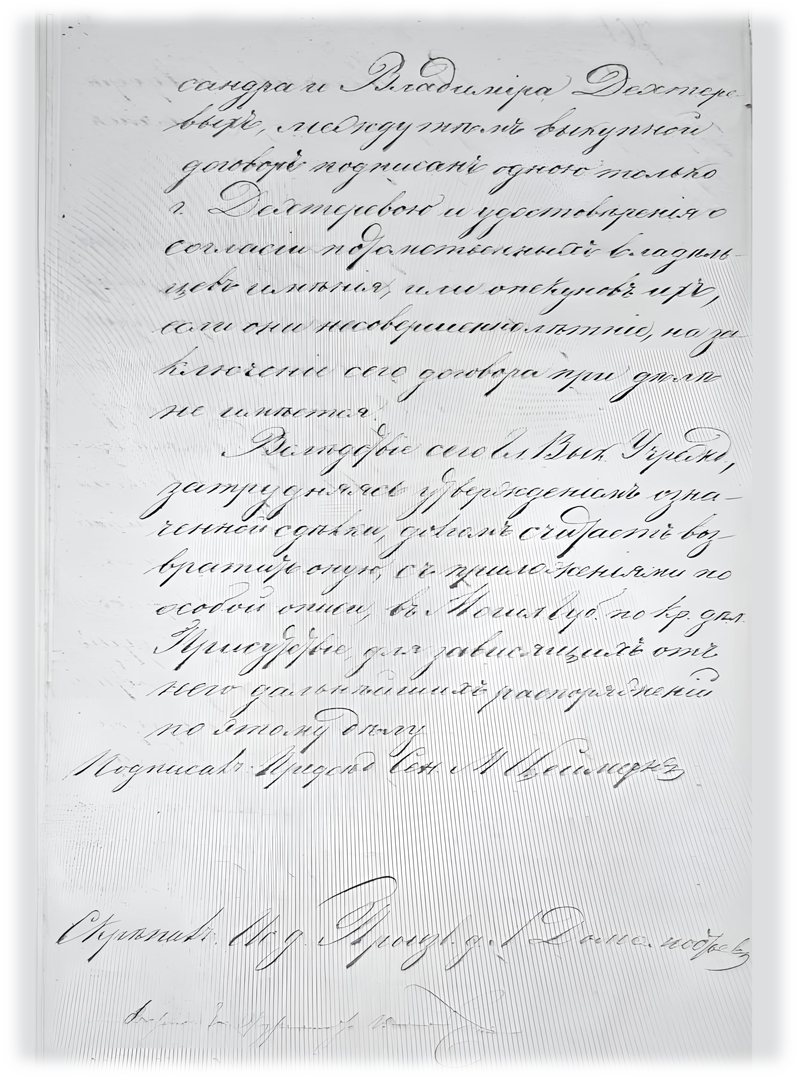 сандра и Владиміра Дехтере-
выхъ, между тѣмъ выкупной
договоръ подписанъ одною только
г. Дехтеревою и удостовѣренія о
согласіи потомственныхъ владѣль-
цевъ имѣнія, или опекуновъ ихъ,
если они несовершеннолѣтніе, на за
ключеніе сего договора при дѣлѣ
не имѣется.
Вслѣдствіе сего Гл Вык. Учрежд,
затрудняясь утвержденіемъ озна-
ченной сдѣлки, долгомъ считаетъ воз-
вратить оную, съ приложеніями по
особой описи, въ Могил Губ. по кр. дѣл.
Присутствіе, для зависящихъ отъ
него дальнѣйшихъ распоряженій
по этому дѣлу
Подписалъ: Предсѣд Сен. М Цеймернъ
Скрѣпилъ: Ис. д. Произв. д. Домонтовъ